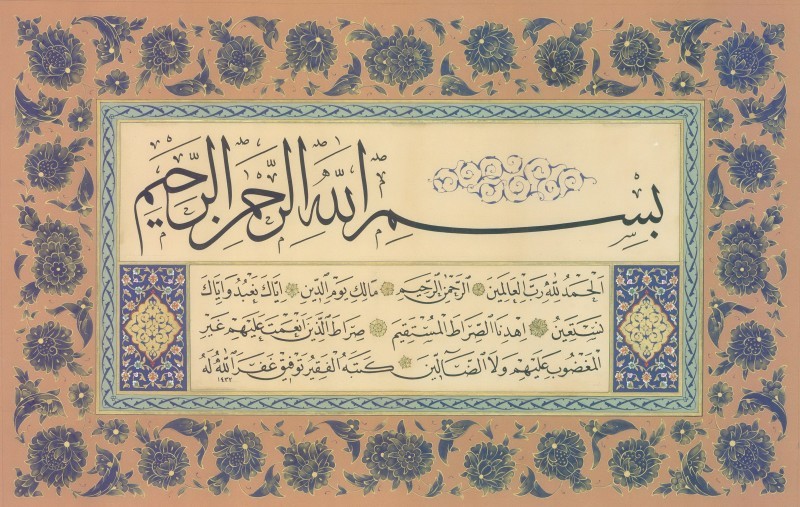 بِسْمِ اللهِ الرَّحْمٰنِ الرَّحِيمِ
اَلْحَمْدُ لِلّٰهِ رَبِّ الْعَالَمِينَ الرَّحْمٰنِ الرَّحِيمِ مَالِكِ يَوْمِ الدِّينِ اِيَّاكَ نَعْبُدُ وَاِيَّاكَ
نَسْتَعِينُ اِهْدِنَا الصِّرَاطَ الْمُسْتَقِيمَ صِرَاطَ الَّذِينَ اَنْعَمْتَ عَلَيْهِمْ غَيْرِ
الْمَغْضُوبِ عَلَيْهِمْ وَلَا الضَّٓالِّينَ كَتَبَهُ الْفَقِيرُ تَوْفِيق غَفَرَ اللهُ لَهُ
١٩٣٢